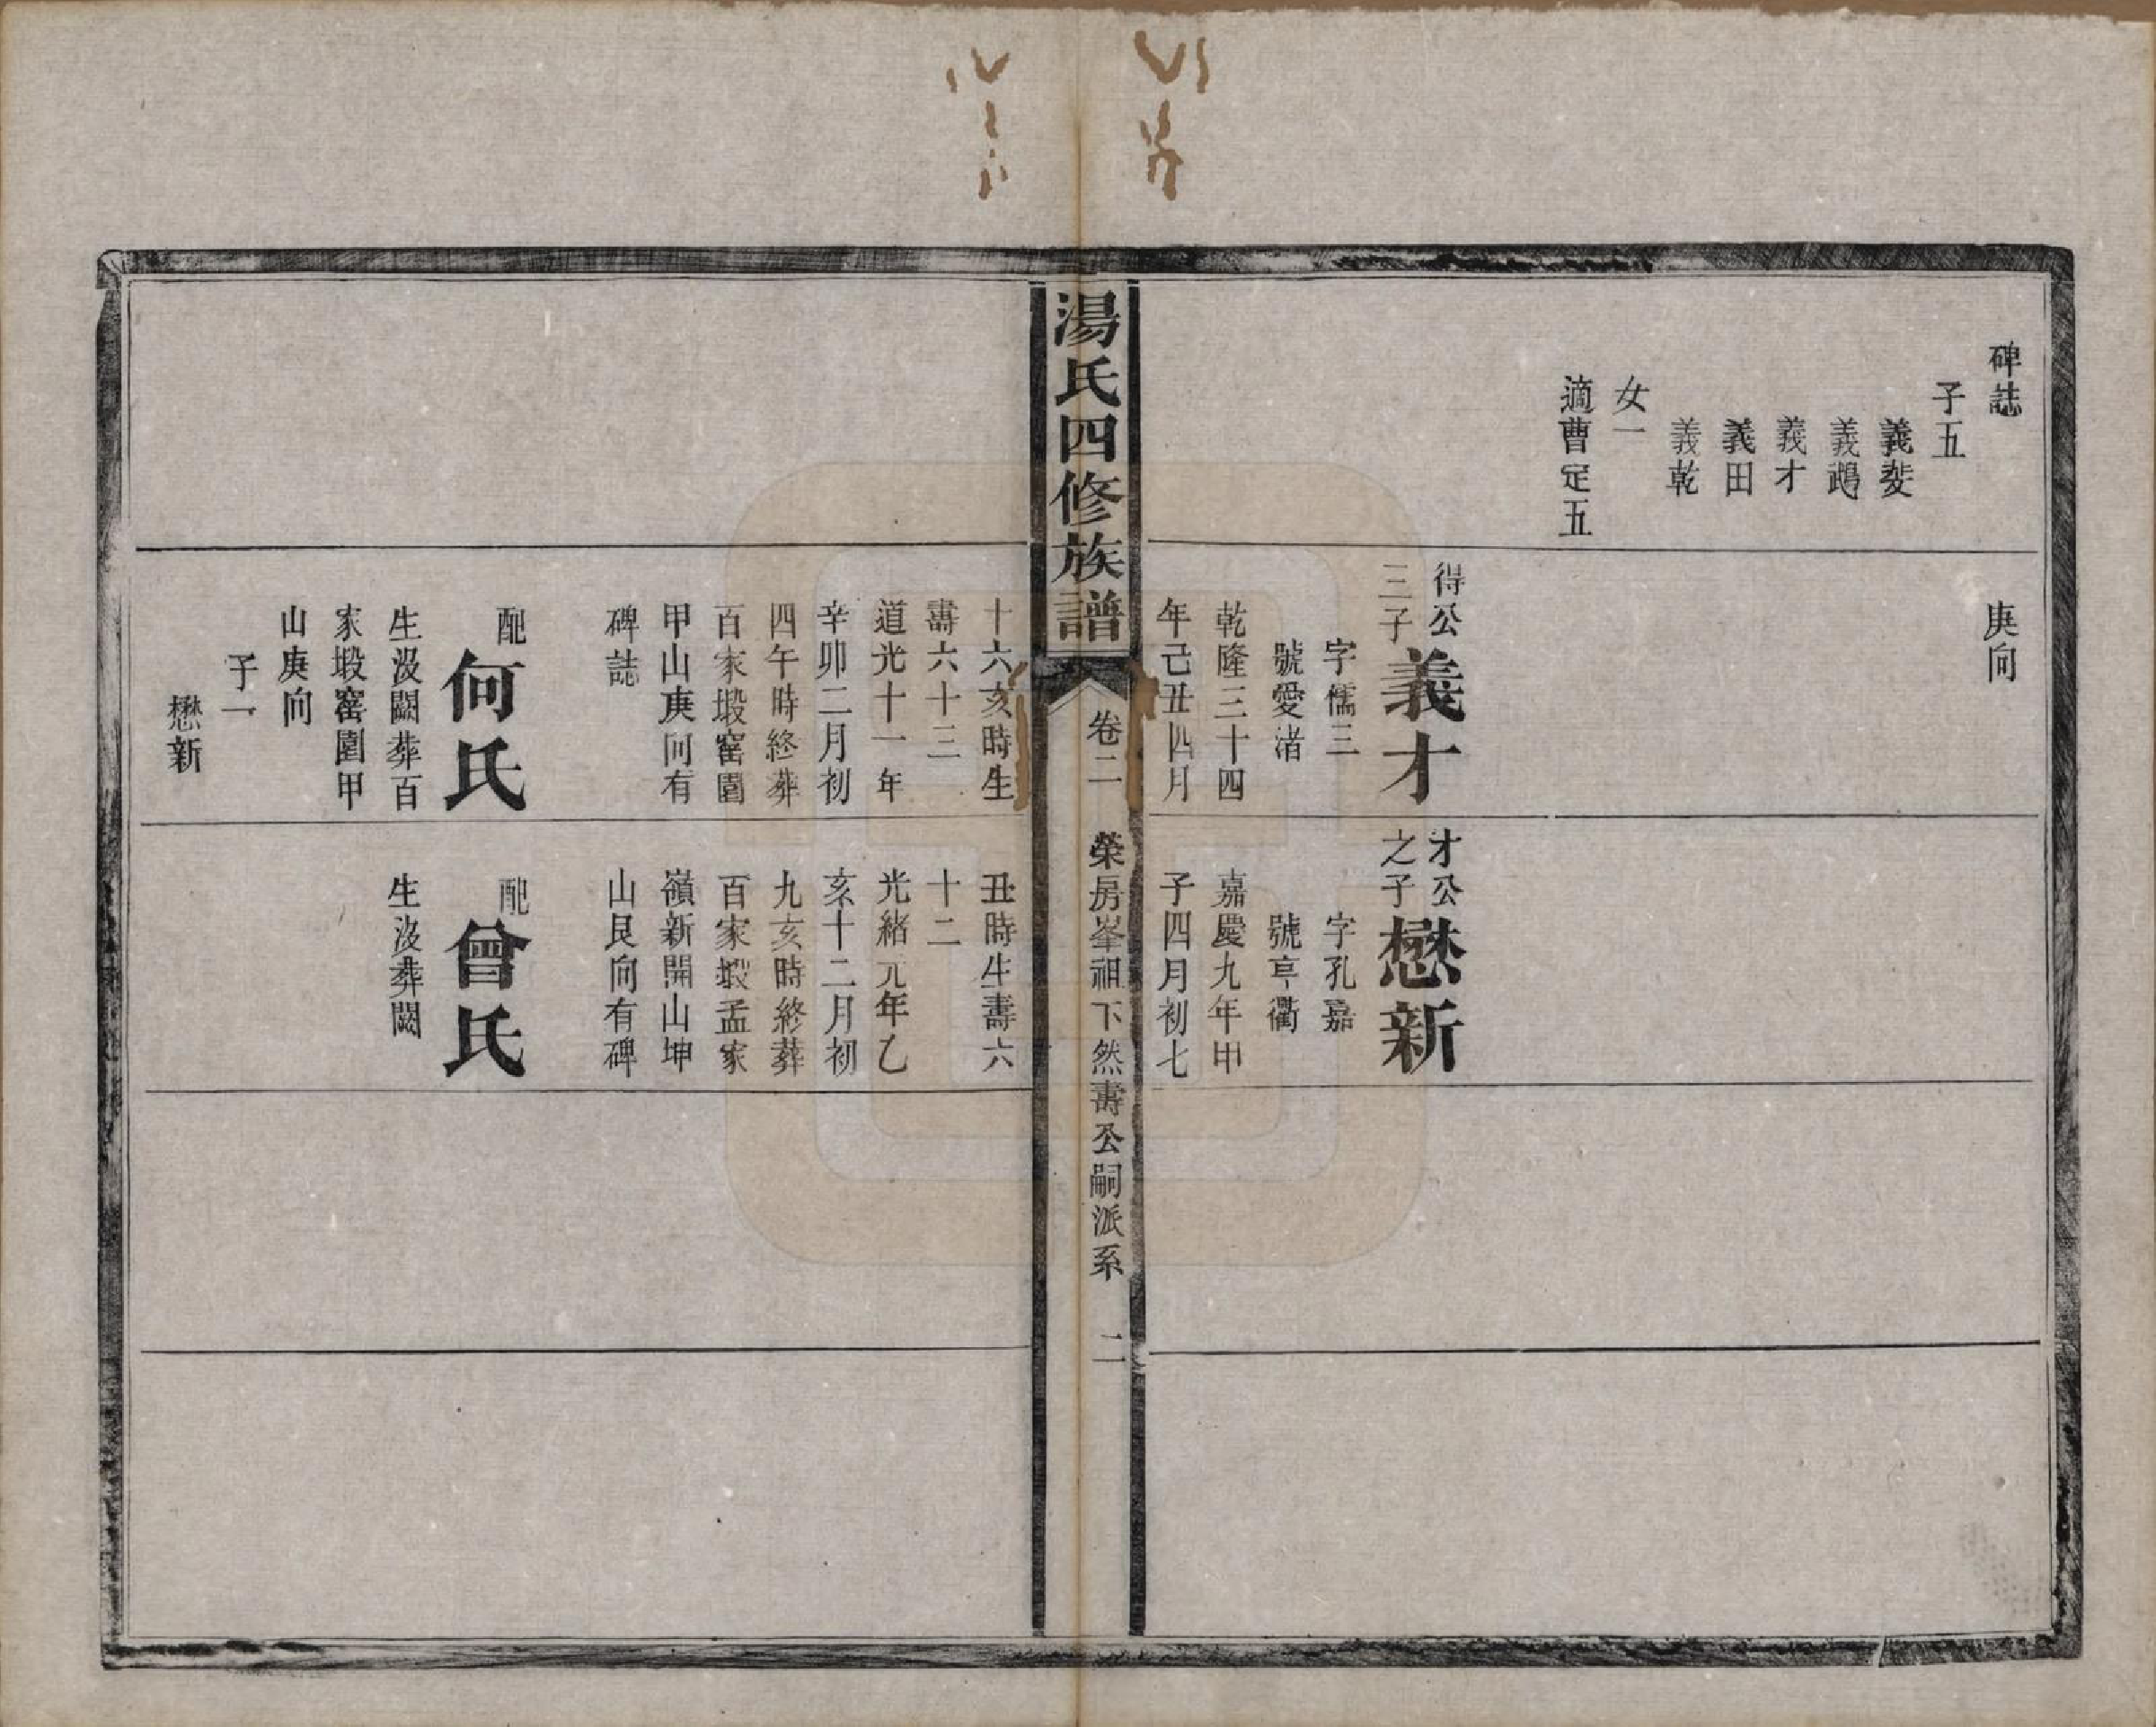 碑誌
子五
義㛄
義鵡
義才
義田
義乾
女一
適曹定五
庚向
得公
三子
義才
字儒三
號愛渚
乾隆三十四
年己丑四月
才公
之子
懋新
字孔嘉
號亨衢
嘉慶九年甲
子四月初七
湯氏四修族譜
卷二
榮房峯祖下然壽公嗣派系
二
十六亥時生
壽六十三
道光十一年
辛卯二月初
四午時終葬
百家塅窰園
甲山庚向有
碑誌
配
何氏
生沒闕葬百
家塅窰園甲
山庚向
子一
懋新
丑時生壽六
十二
光緒元年乙
亥十二月初
九亥時終葬
百家塅孟家
嶺新開山坤
山艮向有碑
配
曾氏
生沒葬闕